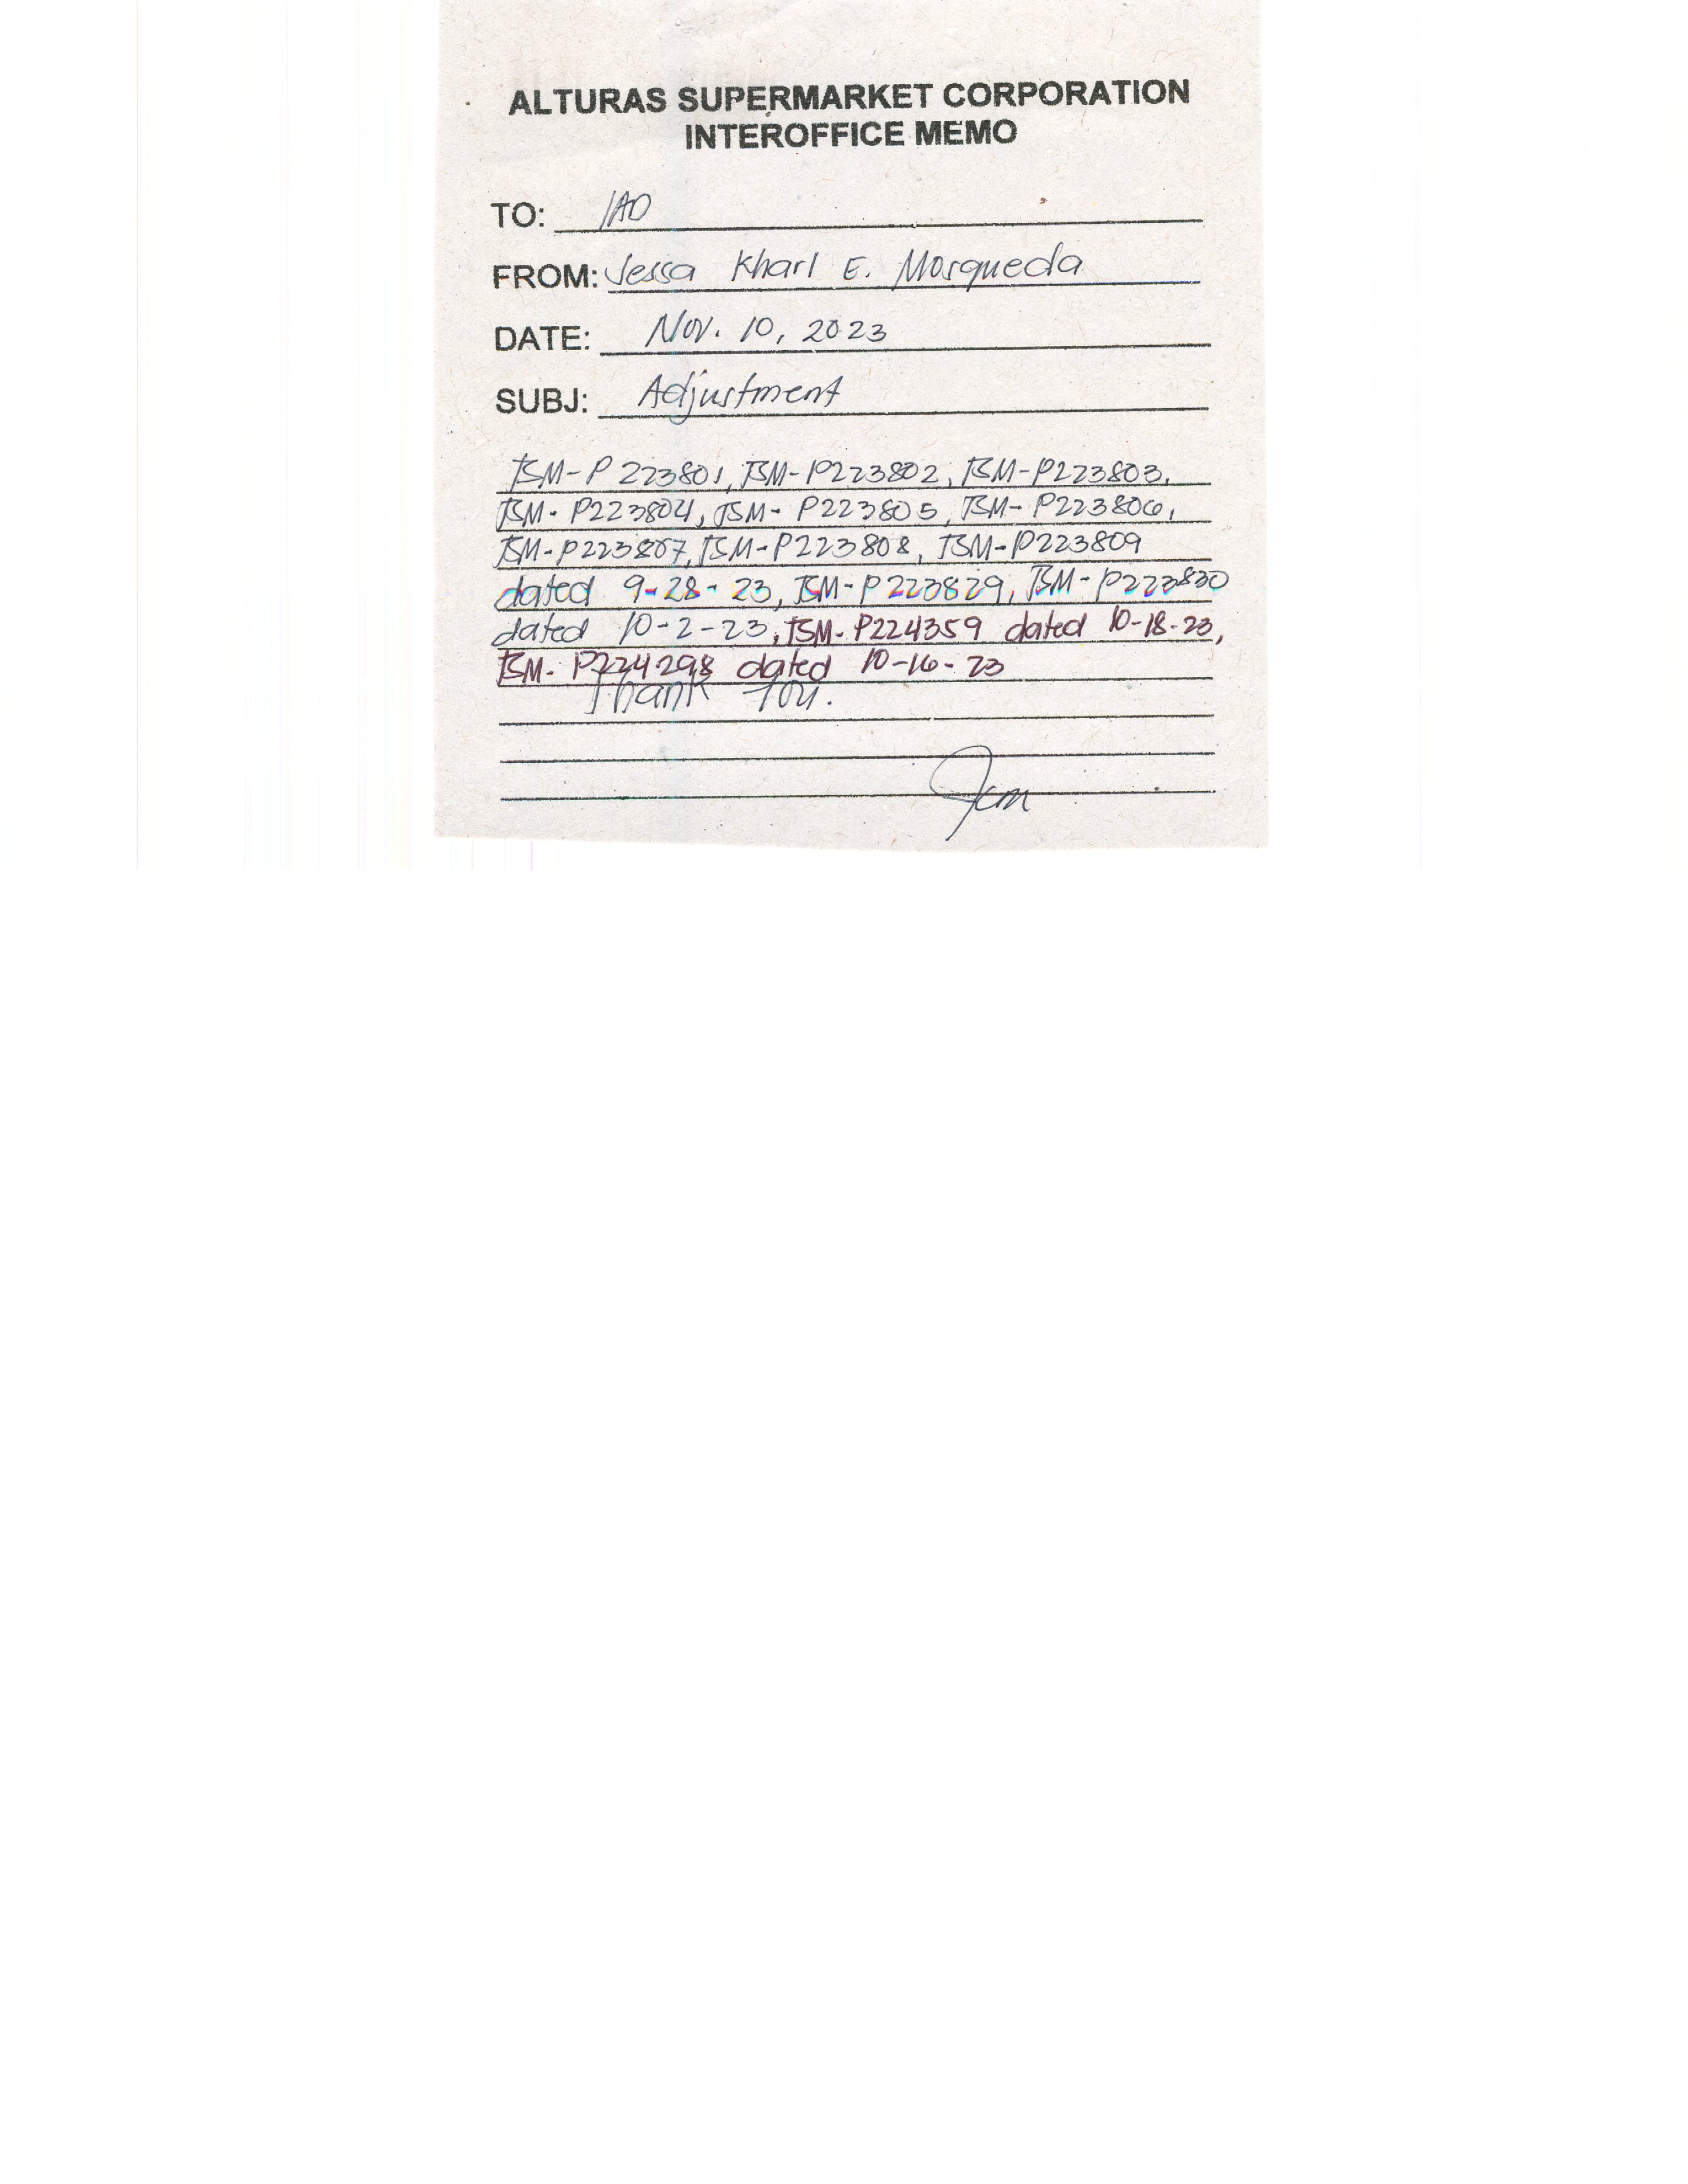 ALTURAS SUPERMARKET CORPORATION
INTEROFFICE MEMO
TO: IAD
FROM: Jessa Kharl E. Mosqueda
DATE: Nov. 10, 2023
SUBJ: Adjustment
TSM-P223801, TSM-P223802, TSM-P223803,
TSM-P223804, TSM-P223805, TSM-P223806,
TSM-P223807, TSM-P223808, TSM-P223809
dated 9-28-23, TSM-P223829, TSM-P223830
dated 10-2-23, TSM-P224359 dated 10-18-23,
TSM-P224298 dated 10-16-23
Thank You.